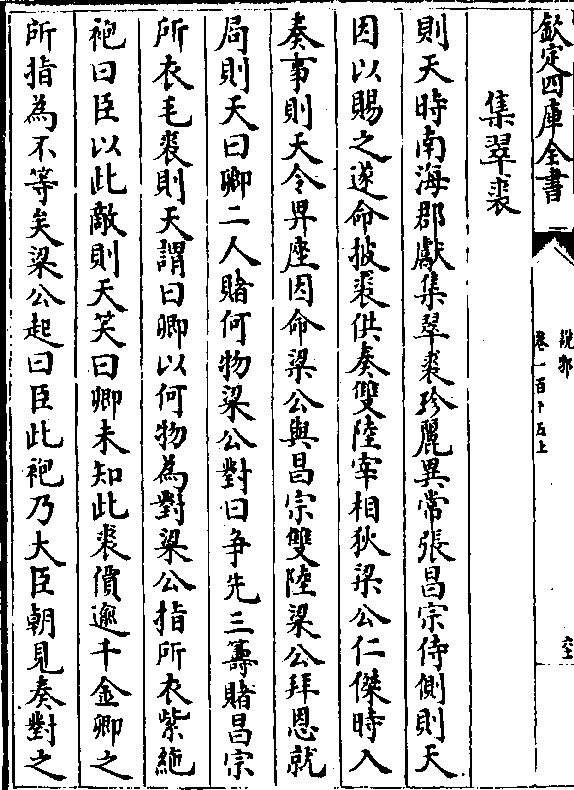 欽定四庫全書
說郛
卷一百十五上
集翠裘
則天時南海郡獻集翠裘珍麗異常張昌宗侍側則天
因以賜之遂命披裘供奏雙陸宰相狄梁公仁傑時入
奏事則天令昇座因命梁公與昌宗雙陸梁公拜恩就
局則天曰卿二人賭何物梁公對曰争先三籌賭昌宗
所衣毛裘則天謂曰卿以何物為對梁公指所衣紫絁
袍曰臣以此敵則天笑曰卿未知此裘價逾千金卿之
所指為不等矣梁公起曰臣此袍乃大臣朝見奏對之